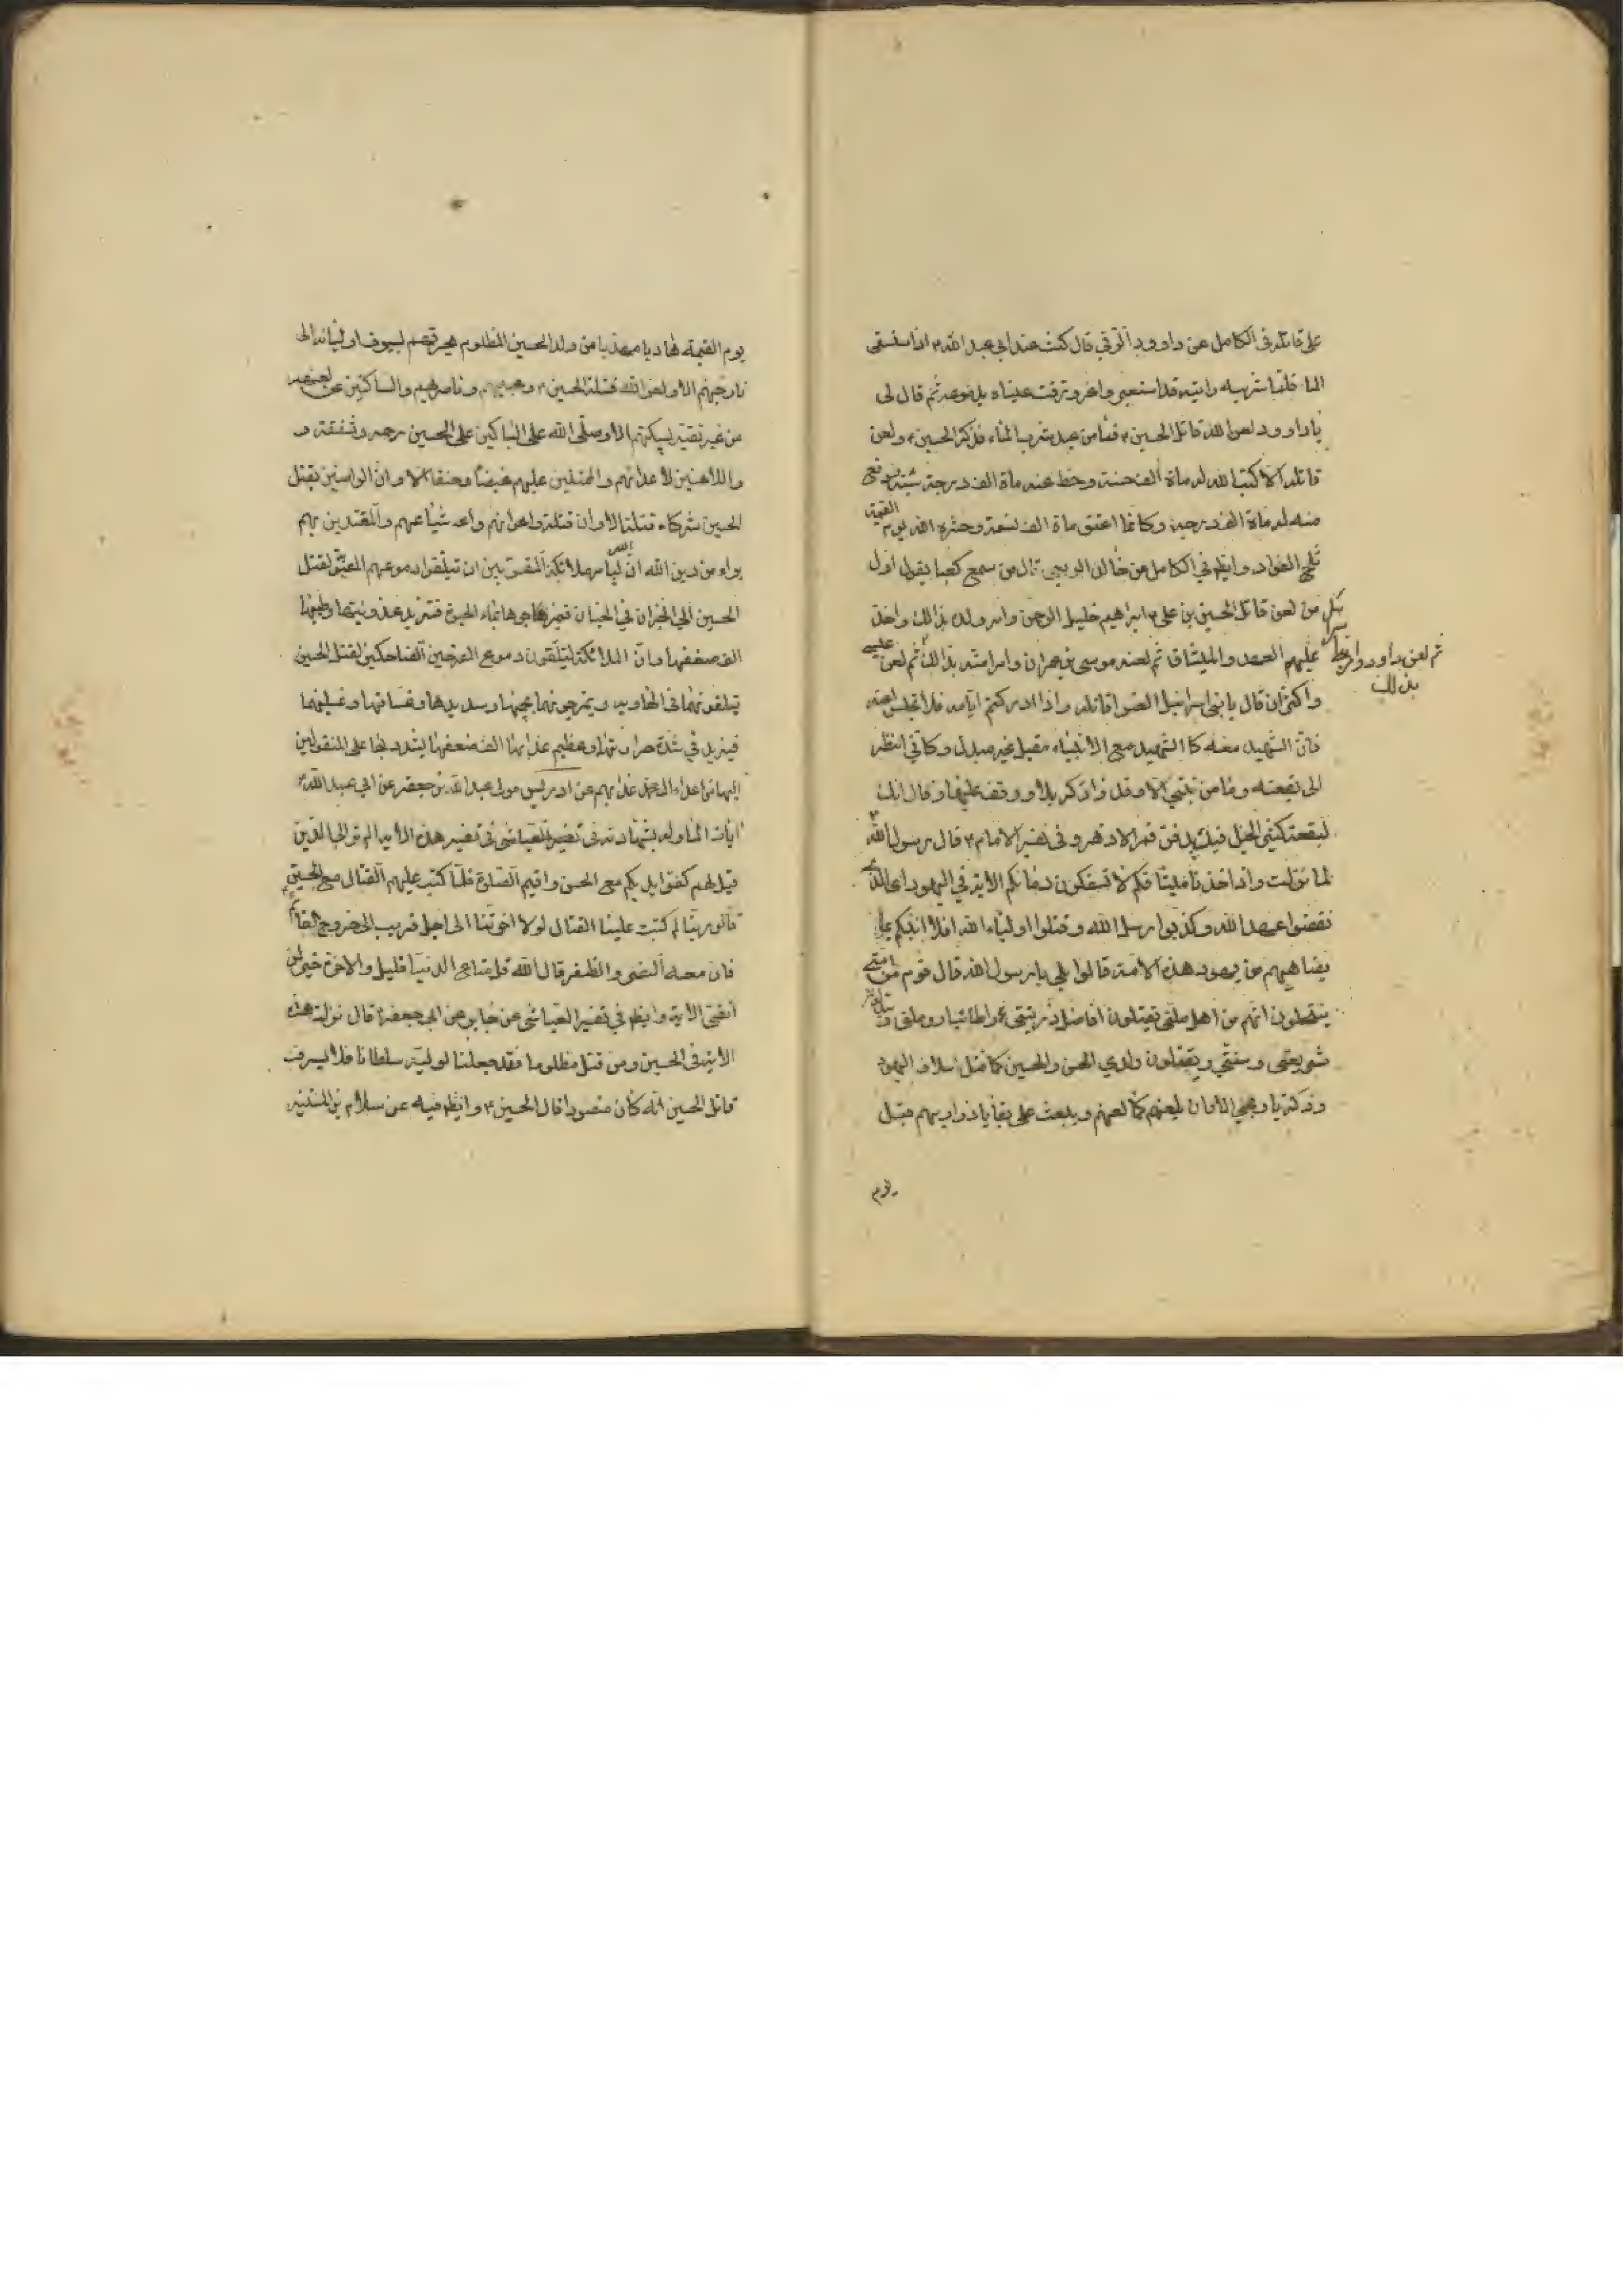 على قاتله فى الكامل عن داوود الرقي قال كنت عند ابي عبد الله ع اذا ستسقى
الماء فلما شربه رايته قد استعبر واغرورقت عيناه بدموعه ثم قال لى
يا داوود لعن الله قاتل الحسين ع فما من عبد شرب الماء فذكر الحسين ع ولعن
قاتله الا كتب الله له ماة الف حسنة وحط عنه ماة الف سيئة ورفع
له ماة الف درجة وكانما اعتق ماة الف نسمة وحشره الله يوم القيمة
ثلج الفؤاد وايضا في الكامل عن خالد الربعي قال من سمع كعبا يقول اول
من لعن قاتل الحسين بن علي ع ابراهيم خليل الرحمن وامر ولده بذالك واخذ
عليهم العهد والميثاق ثم لعنه موسى بن عمران وامر امته بذالك ثم لعن عيسى
ثم لعن داود وامر بنى اسرائيل بذلك
واكثر ان قال يا بنى اسرائيل العنوا قاتله واذا ادركتم ايامه فلا تجلس عنه
فان الشهيد معه كا الشهيد مع الانبياء مقبل غير مدبر وكاني انظر
الى بقعته وما من نبي الا وقد زار كربلا ووقف عليها وقال انك
لبقعة كثير الخير فيك يدفن قمر الازهر وفى تفسير الامام ع قال رسول الله
لما نزلت واذ اخذنا ميثاقكم لا تسفكون دمائكم الاية في اليهود اى الذين
نقضوا عهد الله وكذبوا رسل الله وقتلوا اولياء الله افلا انبئكم على
يضاهيهم من يهود هذه الامة قالوا بلى يا رسول الله قال قوم من امتى
ينتحلون انهم من اهل ملتى يقتلون افاضل ذريتى واطائب ارومتى و يبدلون
شريعتى وسنتي ويقتلون ولدي الحسن والحسين كما قتل اسلاف اليهود
زكريا ويحيى الا وان يلعنهم كما لعنهم ويبعث على بقايا ذراريهم قبل
يوم
يوم القيمة هاديا مهديا من ولد الحسين المظلوم يحرقهم بسيوف اوليائه الى
نار جهنم الا ولعن الله قتلة الحسين ع ومحبيهم وناصريهم والساكتين عن لعنهم
من غير تقية يسكتهم الا وصلى الله على الباكين على الحسين رحمة وشفقة و
واللاعنين لاعدائهم والممتلين عليهم غيضا وحنقا الا وان الراضين بقتل
الحسين شركاء قتلة الا وان قتلة واعوانهم واشياعهم والمقتدين بهم
براء من دين الله ان الله ليامر ملائكة المقربين ان يتلقوا دموعهم المصبوبة لقتل
الحسين الى الخزان في الجنان فيمزجوها بماء الحيوة فتزيد عذوبتها وطيبها
الف ضعفها وان الملائكة ليتلقون دموع الفرحين الضاحكين لقتل الحسين
يتلقونها فى الهاوية ويمزجونها بحميمها وصديدها وغساقها وغسلينها
فيزيد في شدة حرارتها وعظيم عذابها الف ضعفها يشدد بها على المنقولين
اليها من اعداء ال محمد عذابهم عن ادريس مولى عبد الله بن جعفر عن ابي عبد الله ع
ايات الماوله بشهادته فى تفسير العياشى فى تفسير هذه الاية الم تر الى الذين
قيل لهم كفوا ايديكم مع الحسن واقيموا الصلوة فلما كتب عليهم القتال مع الحسين
قالوا ربنا لم كتبت علينا القتال لولا اخرتنا الى اجل قريب الى خروج القائم
فان معه النصر والظفر قال الله قل متاع الدنيا قليل والاخرة خير لمن
اتقى الاية وايضا في تفسير العياشى عن جابر عن ابي جعفر ع قال نزلت هذه
الاية فى الحسين ومن قتل مظلوما فقد جعلنا لوليه سلطانا فلا يسرف
قاتل الحسين انه كان منصورا قال الحسين ع وايضا فيه عن سلام بن المستنير